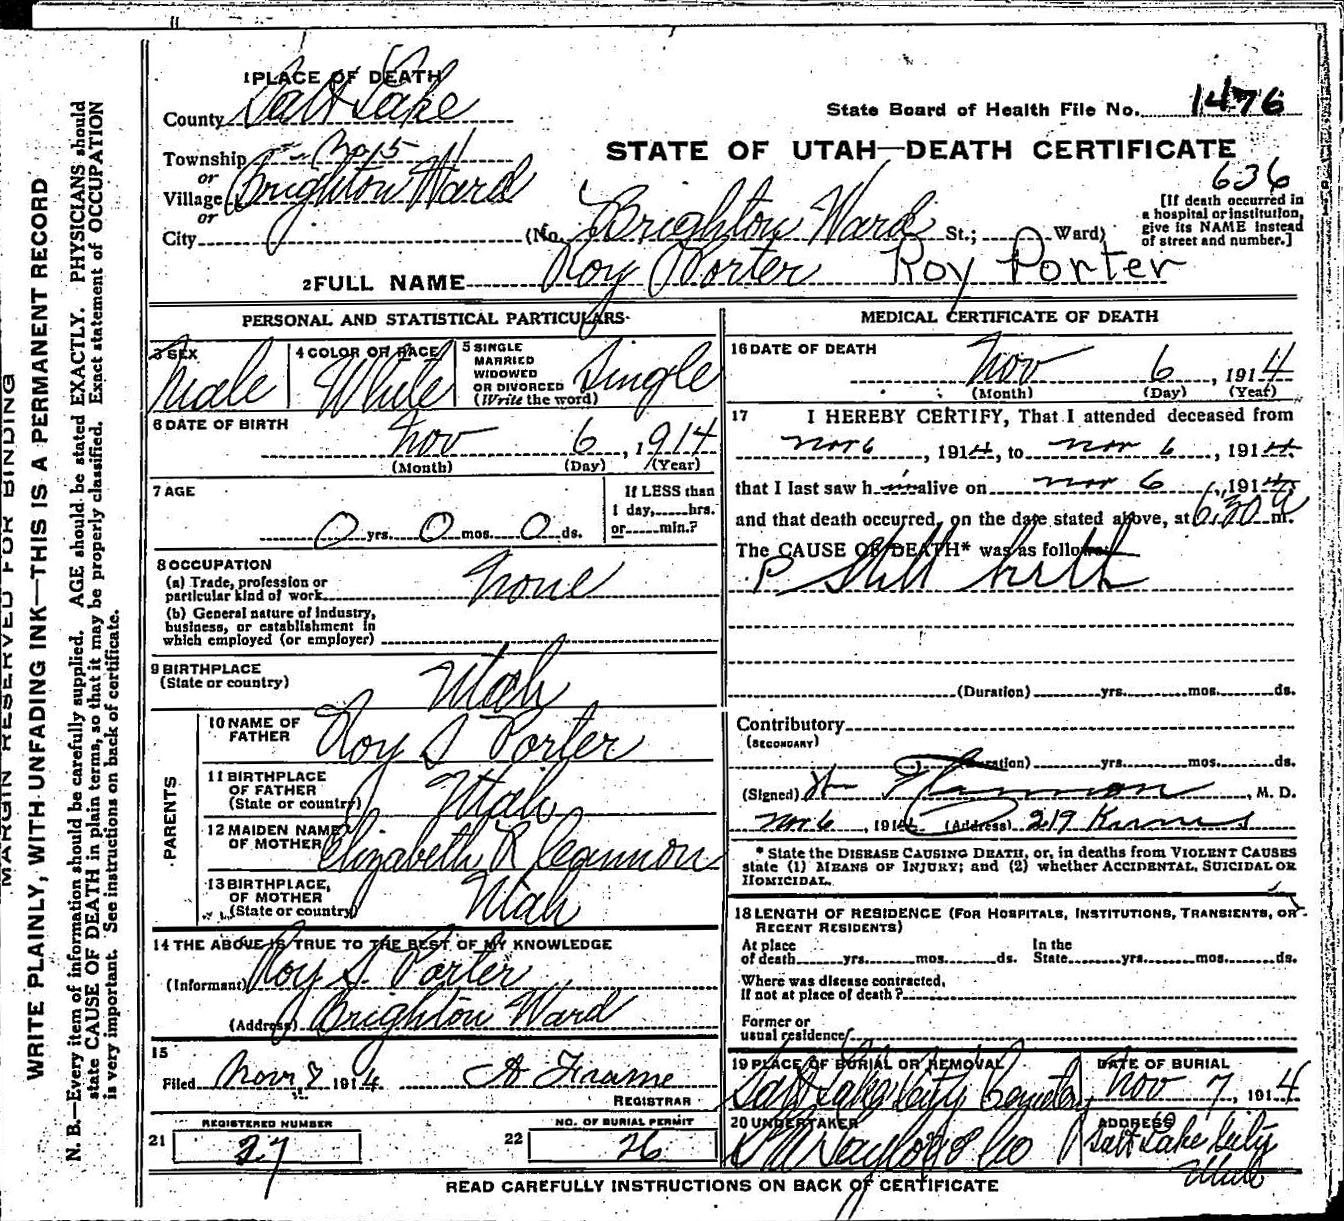 1 PLACE OF DEATH
County Salt Lake
State Board of Health File No. 1476
Township No 15
STATE OF UTAH—DEATH CERTIFICATE
or
Village Brighton Ward
636
or
City (No. Brighton Ward St.; Ward)
[If death occurred in a hospital or institution, give its NAME instead of street and number.]
2 FULL NAME Roy Porter Roy Porter
PERSONAL AND STATISTICAL PARTICULARS
3 SEX Male
4 COLOR OR RACE White
5 SINGLE MARRIED WIDOWED OR DIVORCED (Write the word) Single
6 DATE OF BIRTH
Nov 6, 1914
(Month) (Day) (Year)
7 AGE
If LESS than
1 day, hrs.
or min.?
0 yrs. 0 mos. 0 ds.
8 OCCUPATION
(a) Trade, profession or
particular kind of work None
(b) General nature of industry,
business, or establishment in
which employed (or employer)
9 BIRTHPLACE
(State or country) Utah
PARENTS
10 NAME OF
FATHER Roy S Porter
11 BIRTHPLACE
OF FATHER
(State or country) Utah
12 MAIDEN NAME
OF MOTHER Elizabeth R
13 BIRTHPLACE,
OF MOTHER
(State or country) Utah
14 THE ABOVE IS TRUE TO THE BEST OF MY KNOWLEDGE
(Informant) Roy S. Porter
(Address) Brighton Ward
15
Filed Nov 7 1914 A Frame
REGISTRAR
REGISTERED NUMBER
21 27
NO. OF BURIAL PERMIT
22 26
MEDICAL CERTIFICATE OF DEATH
16 DATE OF DEATH
Nov 6, 1914
(Month) (Day) (Year)
17 I HEREBY CERTIFY, That I attended deceased from
Nov 6, 1914, to Nov 6, 1914
that I last saw h im alive on Nov 6, 1914
and that death occurred, on the date stated above, at 6.30 a m.
The CAUSE OF DEATH* was as follows:
P Still birth
(Duration) yrs. mos. ds.
Contributory
(SECONDARY)
(Duration) yrs. mos. ds.
(Signed) , M. D.
Nov 6, 1914 (Address) 219 Kearns
* State the DISEASE CAUSING DEATH, or, in deaths from VIOLENT CAUSES
state (1) MEANS OF INJURY; and (2) whether ACCIDENTAL, SUICIDAL OR
HOMICIDAL.
18 LENGTH OF RESIDENCE (FOR HOSPITALS, INSTITUTIONS, TRANSIENTS, OR
RECENT RESIDENTS)
At place In the
of death yrs. mos. ds. State yrs. mos. ds.
Where was disease contracted,
if not at place of death?
Former or
usual residence
19 PLACE OF BURIAL OR REMOVAL
Salt Lake City Cemetery
DATE OF BURIAL
Nov 7, 1914
20 UNDERTAKER
S M Taylor & Co
ADDRESS
Salt Lake City
Utah
READ CAREFULLY INSTRUCTIONS ON BACK OF CERTIFICATE
MARGIN RESERVED FOR BINDING
WRITE PLAINLY, WITH UNFADING INK—THIS IS A PERMANENT RECORD
N. B.—Every item of information should be carefully supplied. AGE should be stated EXACTLY. PHYSICIANS should
state CAUSE OF DEATH in plain terms, so that it may be properly classified. Exact statement of OCCUPATION
is very important. See instructions on back of certificate.